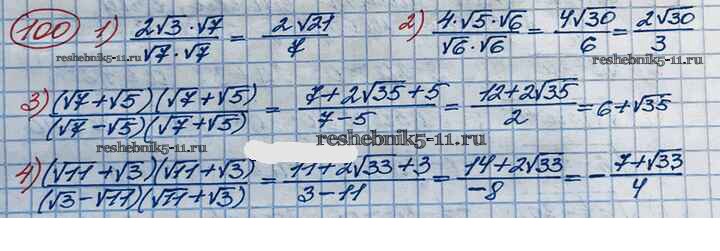 100 1) (2√3·√7)/(√7·√7) = (2√21)/7 2) (4·√5·√6)/(√6·√6) = (4√30)/6 = (2√30)/3
reshebnik5-11.ru reshebnik5-11.ru
3) ((√7+√5)(√7+√5))/((√7-√5)(√7+√5)) = (7+2√35+5)/(7-5) = (12+2√35)/2 = 6+√35
reshebnik5-11.ru reshebnik5-11.ru
4) ((√11+√3)(√11+√3))/((√3-√11)(√11+√3)) = (11+2√33+3)/(3-11) = (14+2√33)/(-8) = -(7+√33)/4
reshebnik5-11.ru